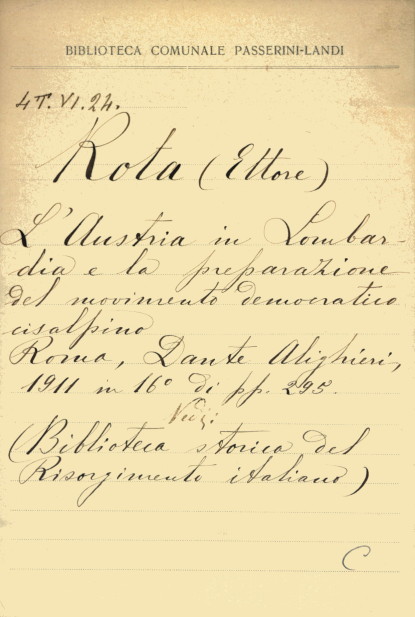 BIBLIOTECA COMUNALE PASSERINI-LANDI
4T.VI.24.
Rota (Ettore)
L'Austria in Lombar-
dia e la preparazione
del movimento democratico
cisalpino
Roma, Dante Alighieri,
1911 in 16° di pp. 295.
Vedi:
(Biblioteca storica del
Risorgimento italiano)
C